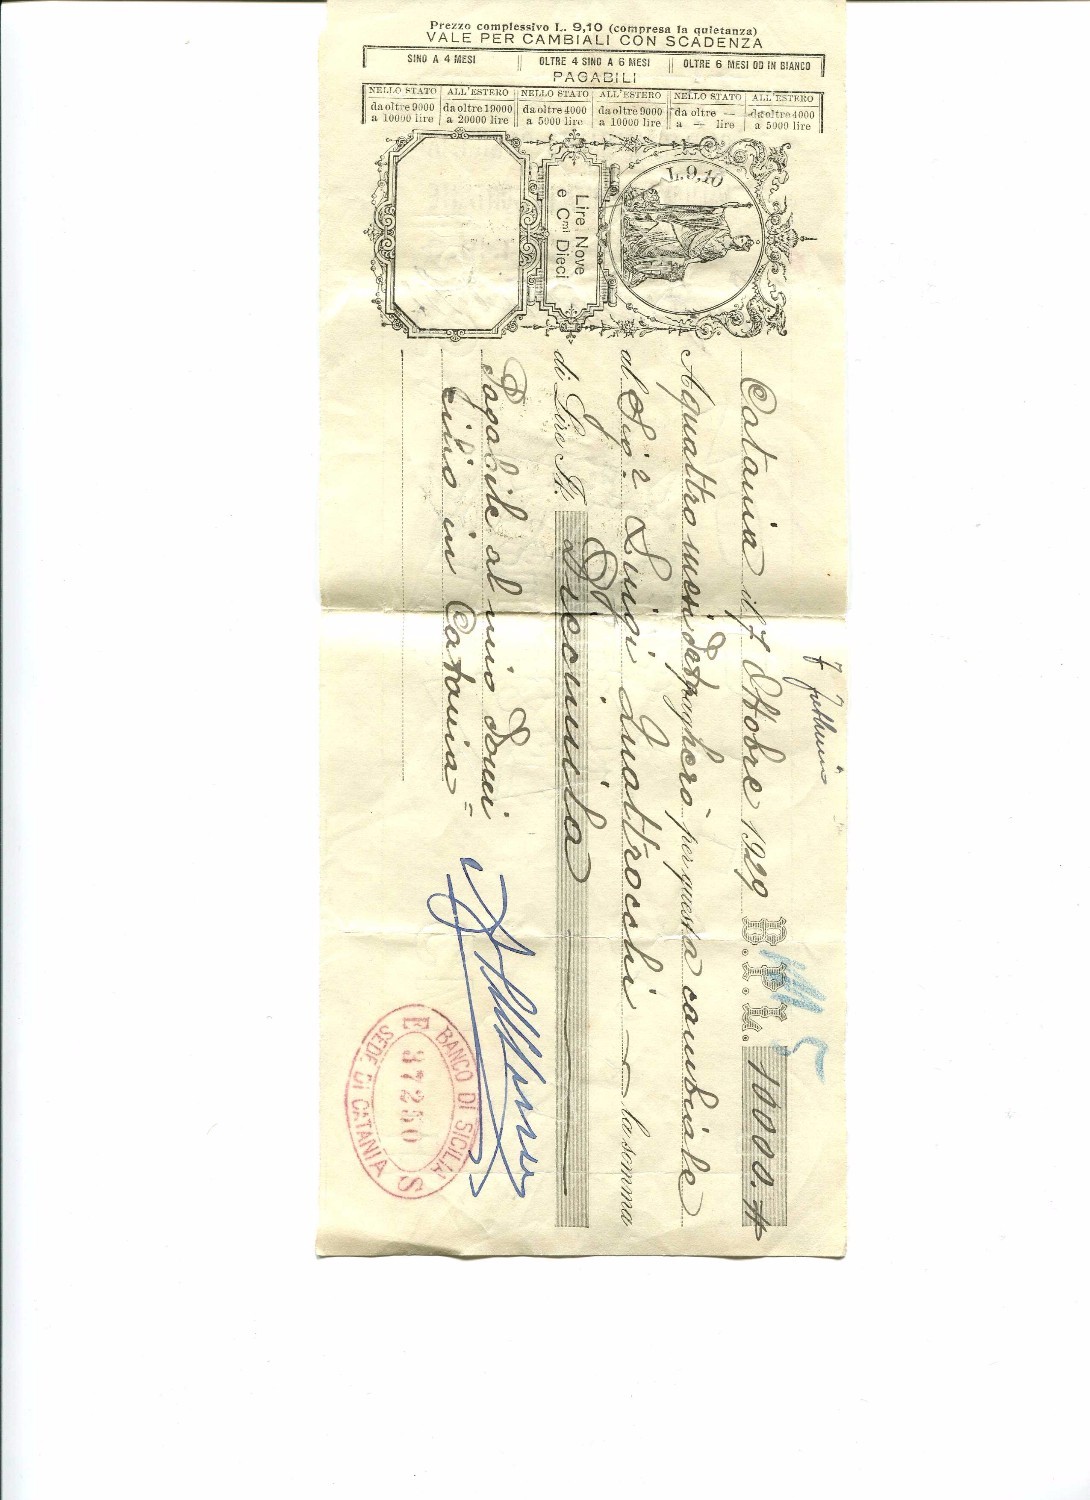 Prezzo complessivo L. 9,10 (compresa la quietanza)
VALE PER CAMBIALI CON SCADENZA
SINO A 4 MESI || OLTRE 4 SINO A 6 MESI || OLTRE 6 MESI OD IN BIANCO
PAGABILI
NELLO STATO | ALL'ESTERO | NELLO STATO | ALL'ESTERO | NELLO STATO | ALL'ESTERO
da oltre 9000 | da oltre 19000 | da oltre 4000 | da oltre 9000 | da oltre — | da oltre 4000
a 10000 lire | a 20000 lire | a 5000 lire | a 10000 lire | a — lire | a 5000 lire
L. 9,10
Lire Nove
e Cmi Dieci
7
Catania il 7 Ottobre 1929 B.P.L. 10000.#
5
A quattro mesi data pagherò per questa cambiale
al Sigr Luigi Quattrocchi — la somma
di Lire It. Diecimila
Pagabile al mio domi
cilio in Catania =
BANCO DI SICILIA
E 37250 S
SEDE DI CATANIA